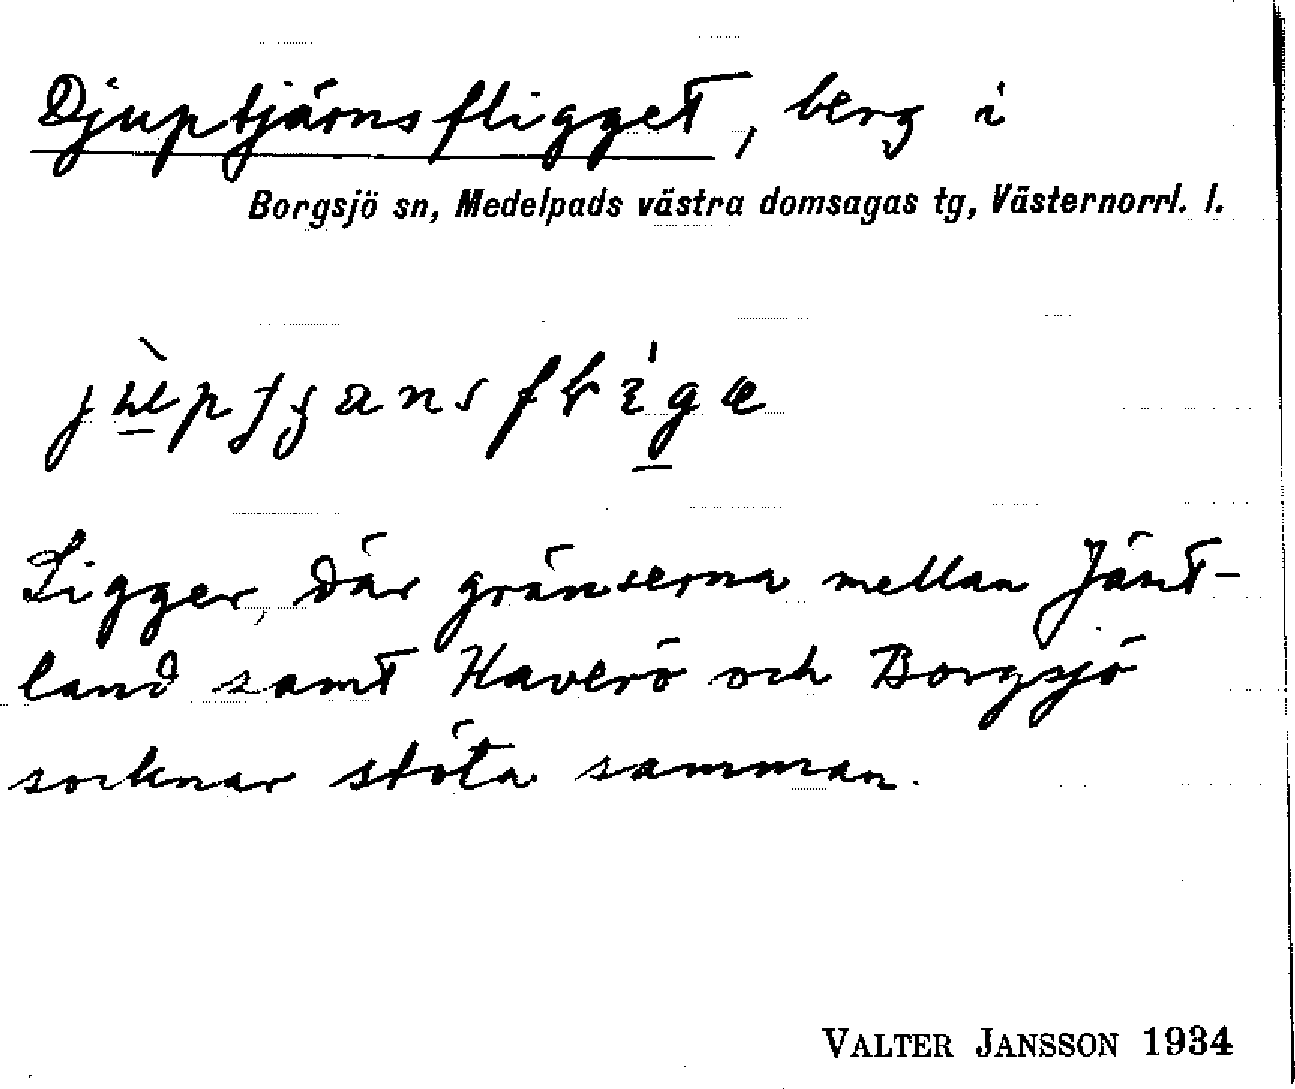 Djuptjärnsfligget, berg i
Borgsjö sn, Medelpads västra domsagas tg, Västernorrl. l.
Ligger, där gränserna mellan Jämt-
land samt Haverö och Borgsjö
socknar stöta samman.
VALTER JANSSON 1934